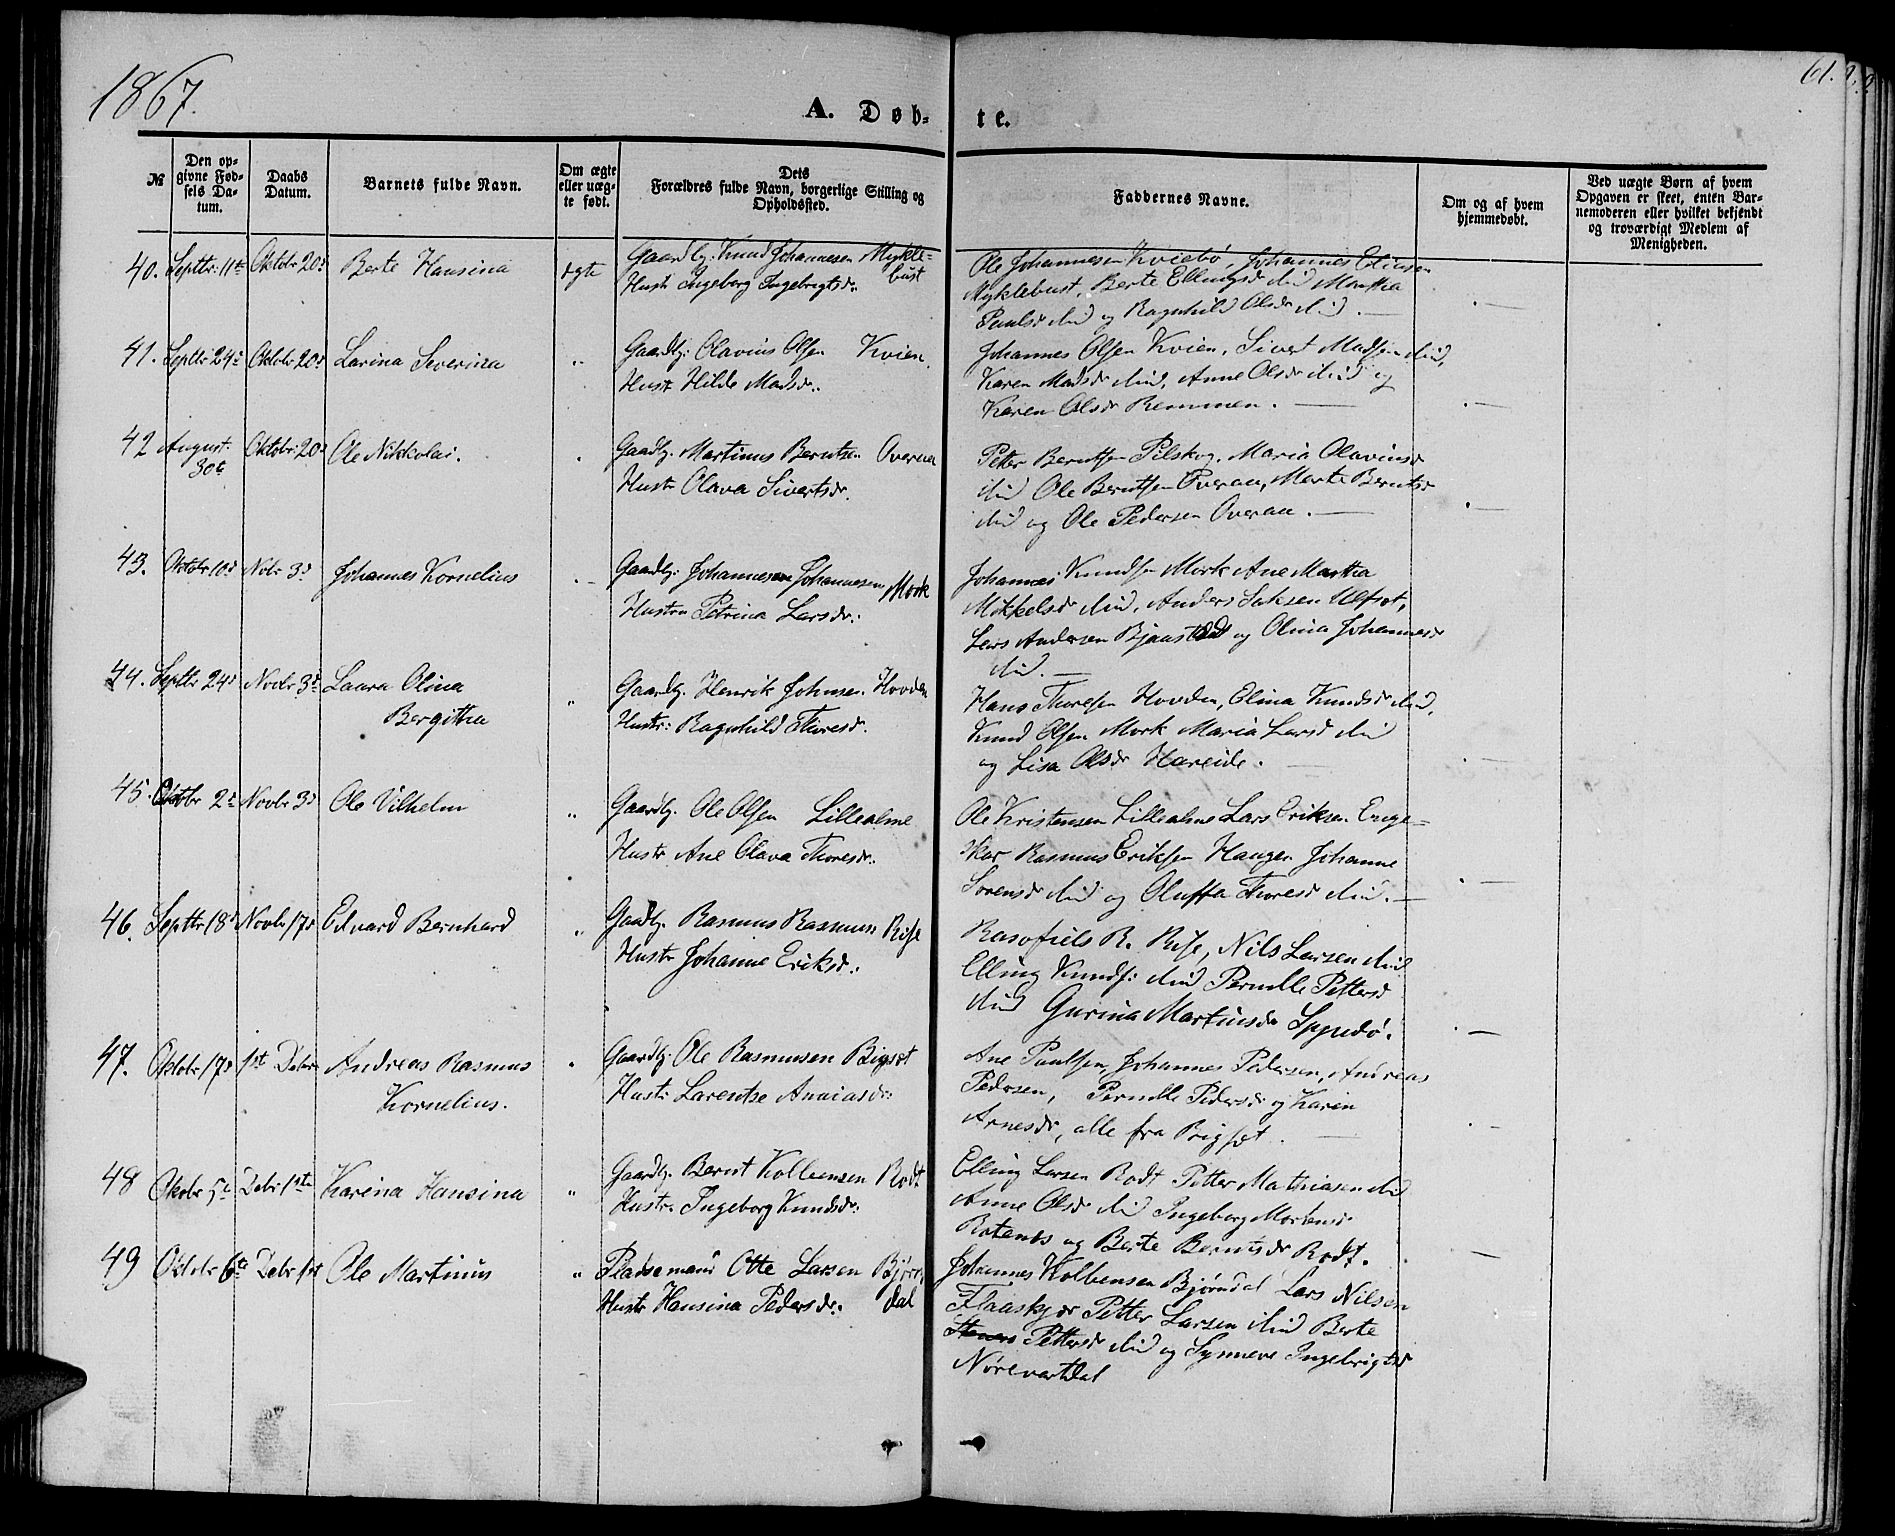 1867.
A. Døb-
te.
61.
№
Den op-
givne Fød-
sels Da-
tum.
Daabs
Datum.
Barnets fulde Navn.
Om ægte
eller uæg-
te født.
Dets
Forældres fulde Navn, borgerlige Stilling og
Opholdssted.
Faddernes Navne.
Om og af hvem
hjemmedøbt.
Ved uægte Børn af hvem
Opgaven er skeet, enten Bar-
nemoderen eller hvilket bekjendt
og troværdigt Medlem af
Menigheden.
40. Septbr. 11te Oktobr 20d Berte Hansina ægte Gaardbr. Knud Johannesen Mykle-
bust
Hustr Ingeborg Ingebrigtsdr.
Ole Johannesen Kviebø, Johannes
Myklebust, Berte Ellingsdr ibid Martha
Paulsdr ibid og Ragnhild Olsdr ibid. —
41. Septbr 24d Oktobr 20d Larina Severina " Gaardbr. Olavius Olsen Kvien.
Hustr Hilde Madsdr.
Johannes Olsen Kvien, Sivert Madsen ibid,
Karen Madsdr ibid, Anne Olsdr ibid og
Karen Olsdr Remmen. —
42 August. 30te Oktobr 20d Ole Nikkolai. " Gaardbr. Martinus Berntsen Overaa
Hustr Olava Sivertsdr.
Petter Berntsen Pilskog, Maria Olaviusdr
ibid Ole Berntsen Overaa, Marte Berntsdr
ibid og Ole Pedersen Overaa. —
43. Oktobr 10d Nobr 3d Johannes Kornelius " Gaardbr. Johannesen Johannesen Mork
Hustru Petrina Larsdr.
Johannes Knudsen Mork Ane Martha
Mikkelsdr ibid, Anders Saksen Ulfset,
Lars Andersen Bjaastad og Olina Johannesdr
ibid. —
44. Septbr 24d Novbr 3d Laura Olina
Bergitha " Gaardbr. Henrik Johnsen Hovden
Hustr: Ragnhild Thoresdr.
Hans Thoresen Hovden, Elina Knudsdr ibid,
Knud Olsen Mork Maria Larsdr ibid
og Lisa Olsdr Hareide. —
45. Oktobr 2d Novbr 3d Ole Vilhelm " Gaardbr. Ole Olsen Lillealme
Hustr. Ane Olava Thoresdr.
Ole Kristensen Lillealme Lars Eriksen Enge-
skar Rasmus Eriksen Haugen Johanne
Sorensdr ibid og Oluffa Thoresdr ibid. —
46. Septbr 18d Novbr 17d Edvard Bernhard " Gaardbr. Rasmus Rasmusn Rise
Hustr Johanne Eriksdr.
R. Rise, Nils Larsen ibid
Elling Knuds: ibid Pernelle Pettersdr
ibid Gurina Martinsdr
47. Oktobr 17d 1ste Debr Andreas Rasmus
Kornelius. " Gaardbr. Ole Rasmusen Bigset
Hustr Larentse Ananiasdr.
Ane Paulsen, Johannes Pedersen, Andreas
Pedersen, Pernelle Pedersdr og Karin
Arnesdr, alle fra Brigset. —
48 Okobr 5te Debr 1ste Karina Hansina " Gaardbr. Bernt Kolbensen Rodt
Hustr. Ingeborg Knudsdr.
Elling Larsen Rodt Petter Mathiasen ibid
Anne Olsdr ibid Ingeborg Mortensdr
og Berte Berntsdr Rodt.
49 Oktobr 6te Debr 1ste Ole Martinus " Pladsemand Otte Larsen Bjørn-
dal
Hustr Hansina Pedersdr.
Johannes Kolbensen Bjørndal Lars Nilsen
Flaaskjær Petter Larsen ibid Berte
Pettersdr ibid og Synneve Ingebrigtsdr
Nørevartdal